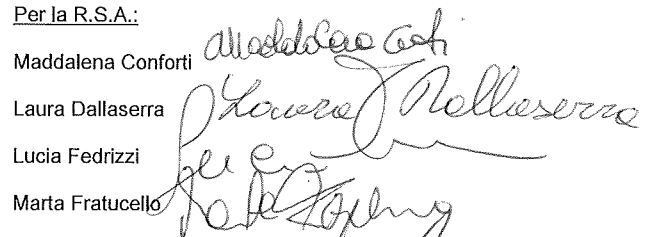 Per la R.S.A.:
Maddalena Conforti
Laura Dallaserra Laura Dallaserra
Lucia Fedrizzi
Marta Fratucello